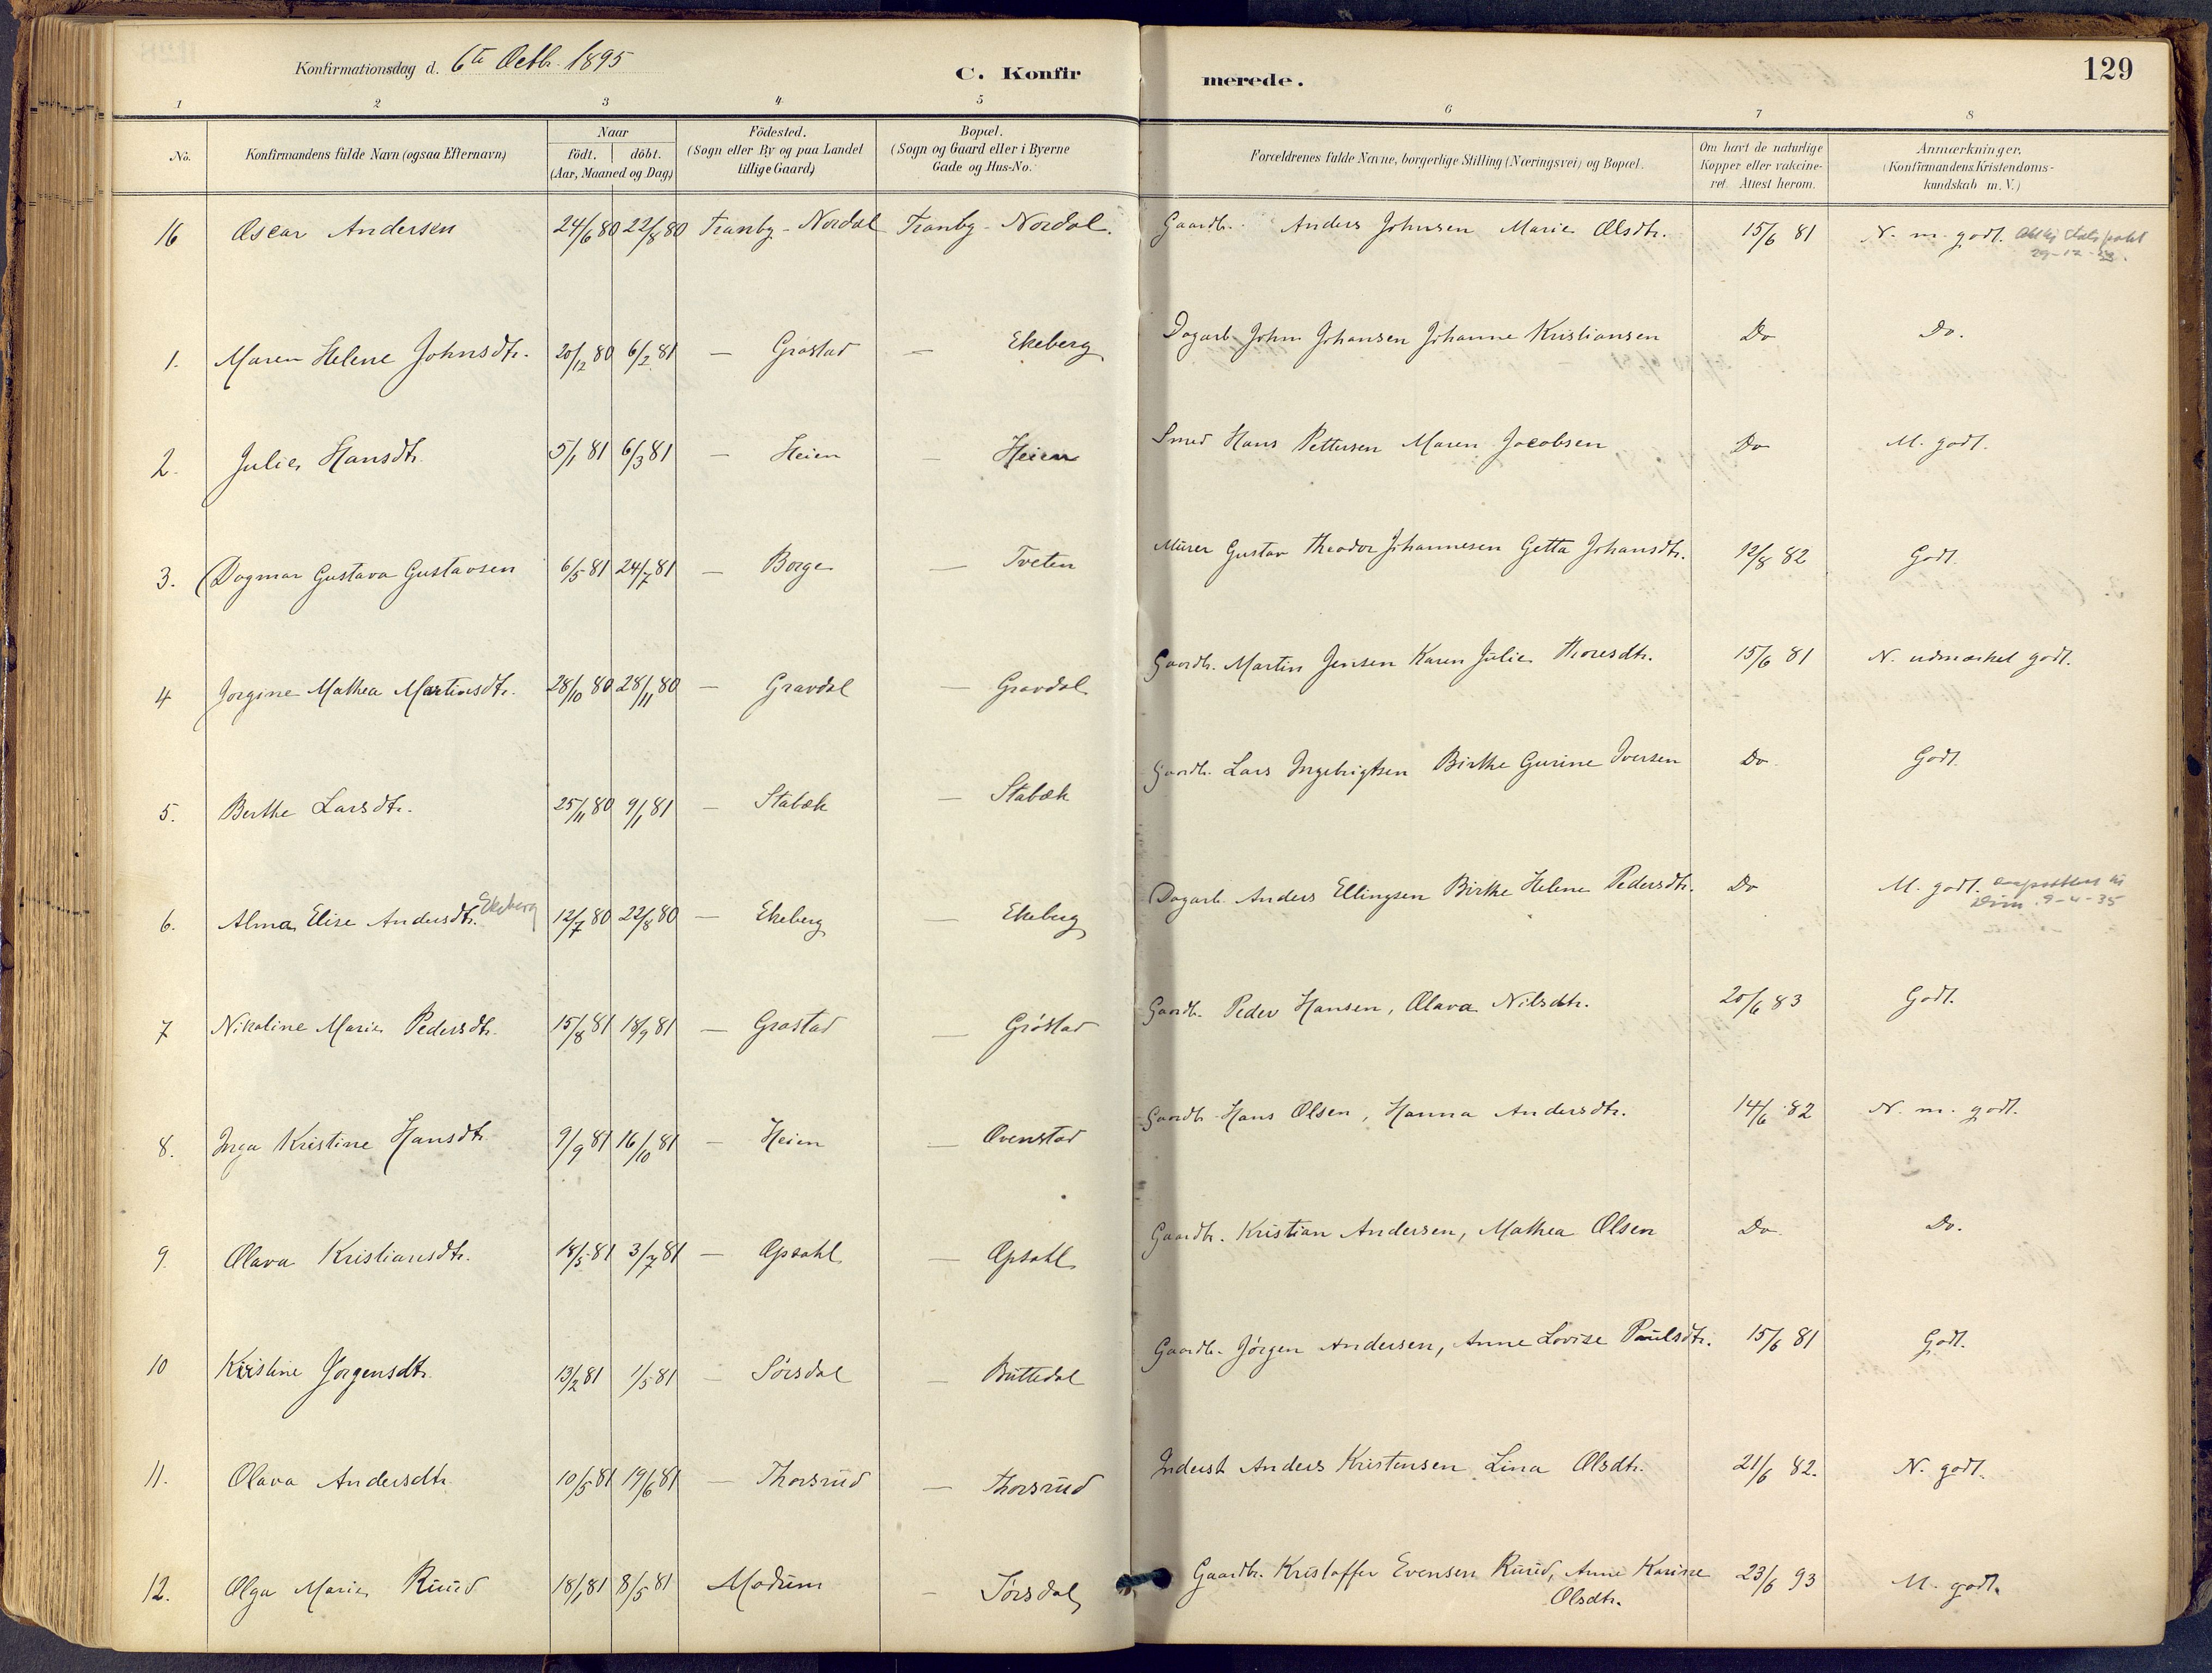 Konfirmationsdag d. 6te Octbr. 1895
C. Konfirmerede.
129
1 2 3 4 5 6 7 8
No.
Konfirmandens fulde Navn (ogsaa Efternavn)
Naar
födt. döbt.
(Aar, Maaned og Dag)
Födested.
(Sogn eller By og paa Landet
tillige Gaard)
Bopæl.
(Sogn og Gaard eller i Byerne
Gade og Hus-No.
Forældrenes fulde Navne, borgerlige Stilling (Næringsvei) og Bopæl.
Om havt de naturlige
Kopper eller vakcine-
ret. Attest herom.
Anmærkninger.
(Konfirmandens Kristendoms-
kundskab m. V.)
16 Oscar Andersen 24/6 80 22/8 80 Tranby - Nordal Tranby - Nordal. Gaardb. Anders Johnsen Marie Olsdtr. 15/6 81 N. m. godt.
29-12-
1. Maren Helene Johnsdtr. 20/12 80 6/2 81 — Grøstad — Ekeberg Dagarb. John Johansen Johanne Kristiansen Do Do.
2. Julie Hansdtr. 5/1 81 6/3 81 — Heien — Heien Smed Hans Pettersen Maren Jacobsen Do M. godt.
3. Dagmar Gustava Gustavsen 6/5 81 24/7 81 — Borge — Tveten Murer Gustav Theodor Johannesen Getta Johansdtr. 12/8 82 Godt.
4 Jorgine Mathea Martinsdtr. 28/10 80 28/11 80 — Gravdal — Gravdal Gaardb. Martin Jensen Karen Julie Thoresdtr. 15/6 81 N. udmærket godt.
5. Berthe Larsdtr. 25/11 80 9/1 81 — Stabæk — Stabæk Gaardb. Lars Ingebrigtsen Birthe Gurine Iversen Do Godt.
6. Alma Elise Andersdtr. Ekeberg 12/7 80 22/8 80 — Ekeberg — Ekeberg Dagarb. Anders Ellingsen Birthe Helene Pedersdtr. Do M. godt.
9-4-35
7 Nikoline Marie Pedersdtr. 15/8 81 18/9 81 — Grøstad — Grøstad Gaardb. Peder Hansen, Olava Nilsdtr. 20/6 83 Godt.
8. Inga Kristine Hansdtr 9/9 81 16/10 81 — Heien — Ovenstad Gaardb. Hans Olsen, Hanna Andersdtr. 14/6 82 N. m. godt.
9. Olava Kristiansdtr. 18/5 81 3/7 81 — Opsahl — Opsahl Gaardb. Kristian Andersen, Mathea Olsen Do Do.
10 Kristine Jørgensdtr. 13/2 81 1/5 81 — Sørsdal — Buttedal Gaardb. Jørgen Andersen, Anne Lovise Paulsdtr. 15/6 81 Godt.
11. Olava Andersdtr. 10/5 81 19/6 81 — Thorsrud — Thorsrud Inderst Anders Kristensen Lina Olsdtr. 21/6 82. N. godt.
12. Olga Marie Ruud 18/1 81 8/5 81 Modum — Sørsdal Gaardb. Kristoffer Evensen Ruud, Anne Karine 23/6 93 M. godt.
Olsdtr.